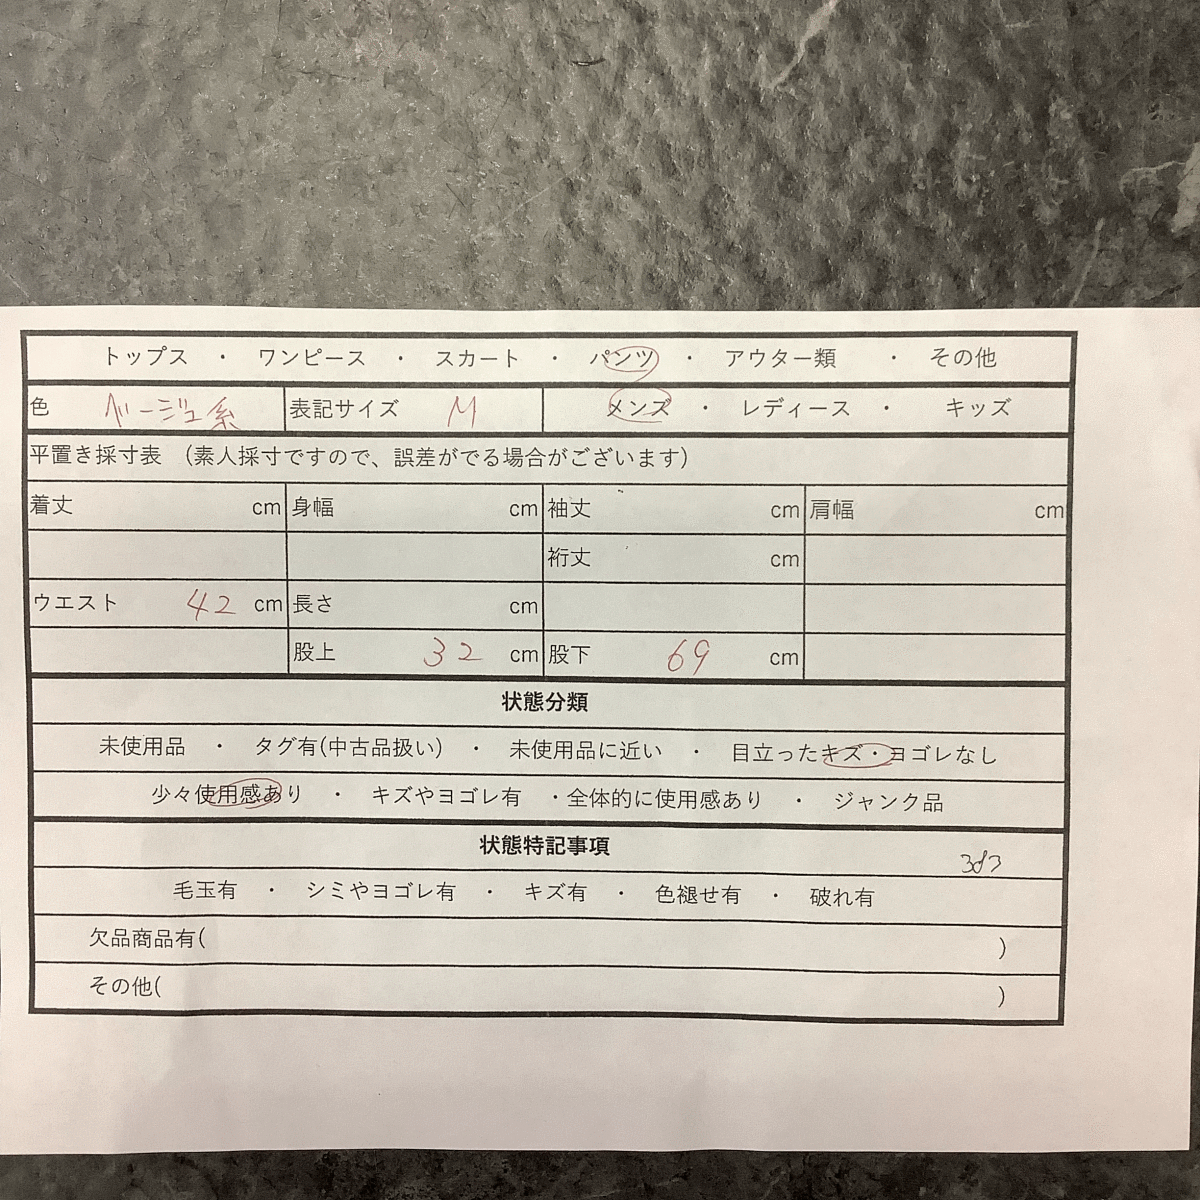 トップス ・ ワンピース ・ スカート ・ パンツ ・ アウター類 ・ その他
色 ベージュ系 表記サイズ M メンズ ・ レディース ・ キッズ
平置き採寸表 （素人採寸ですので、誤差がでる場合がございます）
着丈 cm 身幅 cm 袖丈 cm 肩幅 cm
裄丈 cm
ウエスト 42 cm 長さ cm
股上 32 cm 股下 69 cm
状態分類
未使用品 ・ タグ有(中古品扱い) ・ 未使用品に近い ・ 目立ったキズ・ヨゴレなし
少々使用感あり ・ キズやヨゴレ有 ・全体的に使用感あり ・ ジャンク品
状態特記事項
毛玉有 ・ シミやヨゴレ有 ・ キズ有 ・ 色褪せ有 ・ 破れ有
欠品商品有( )
その他( )